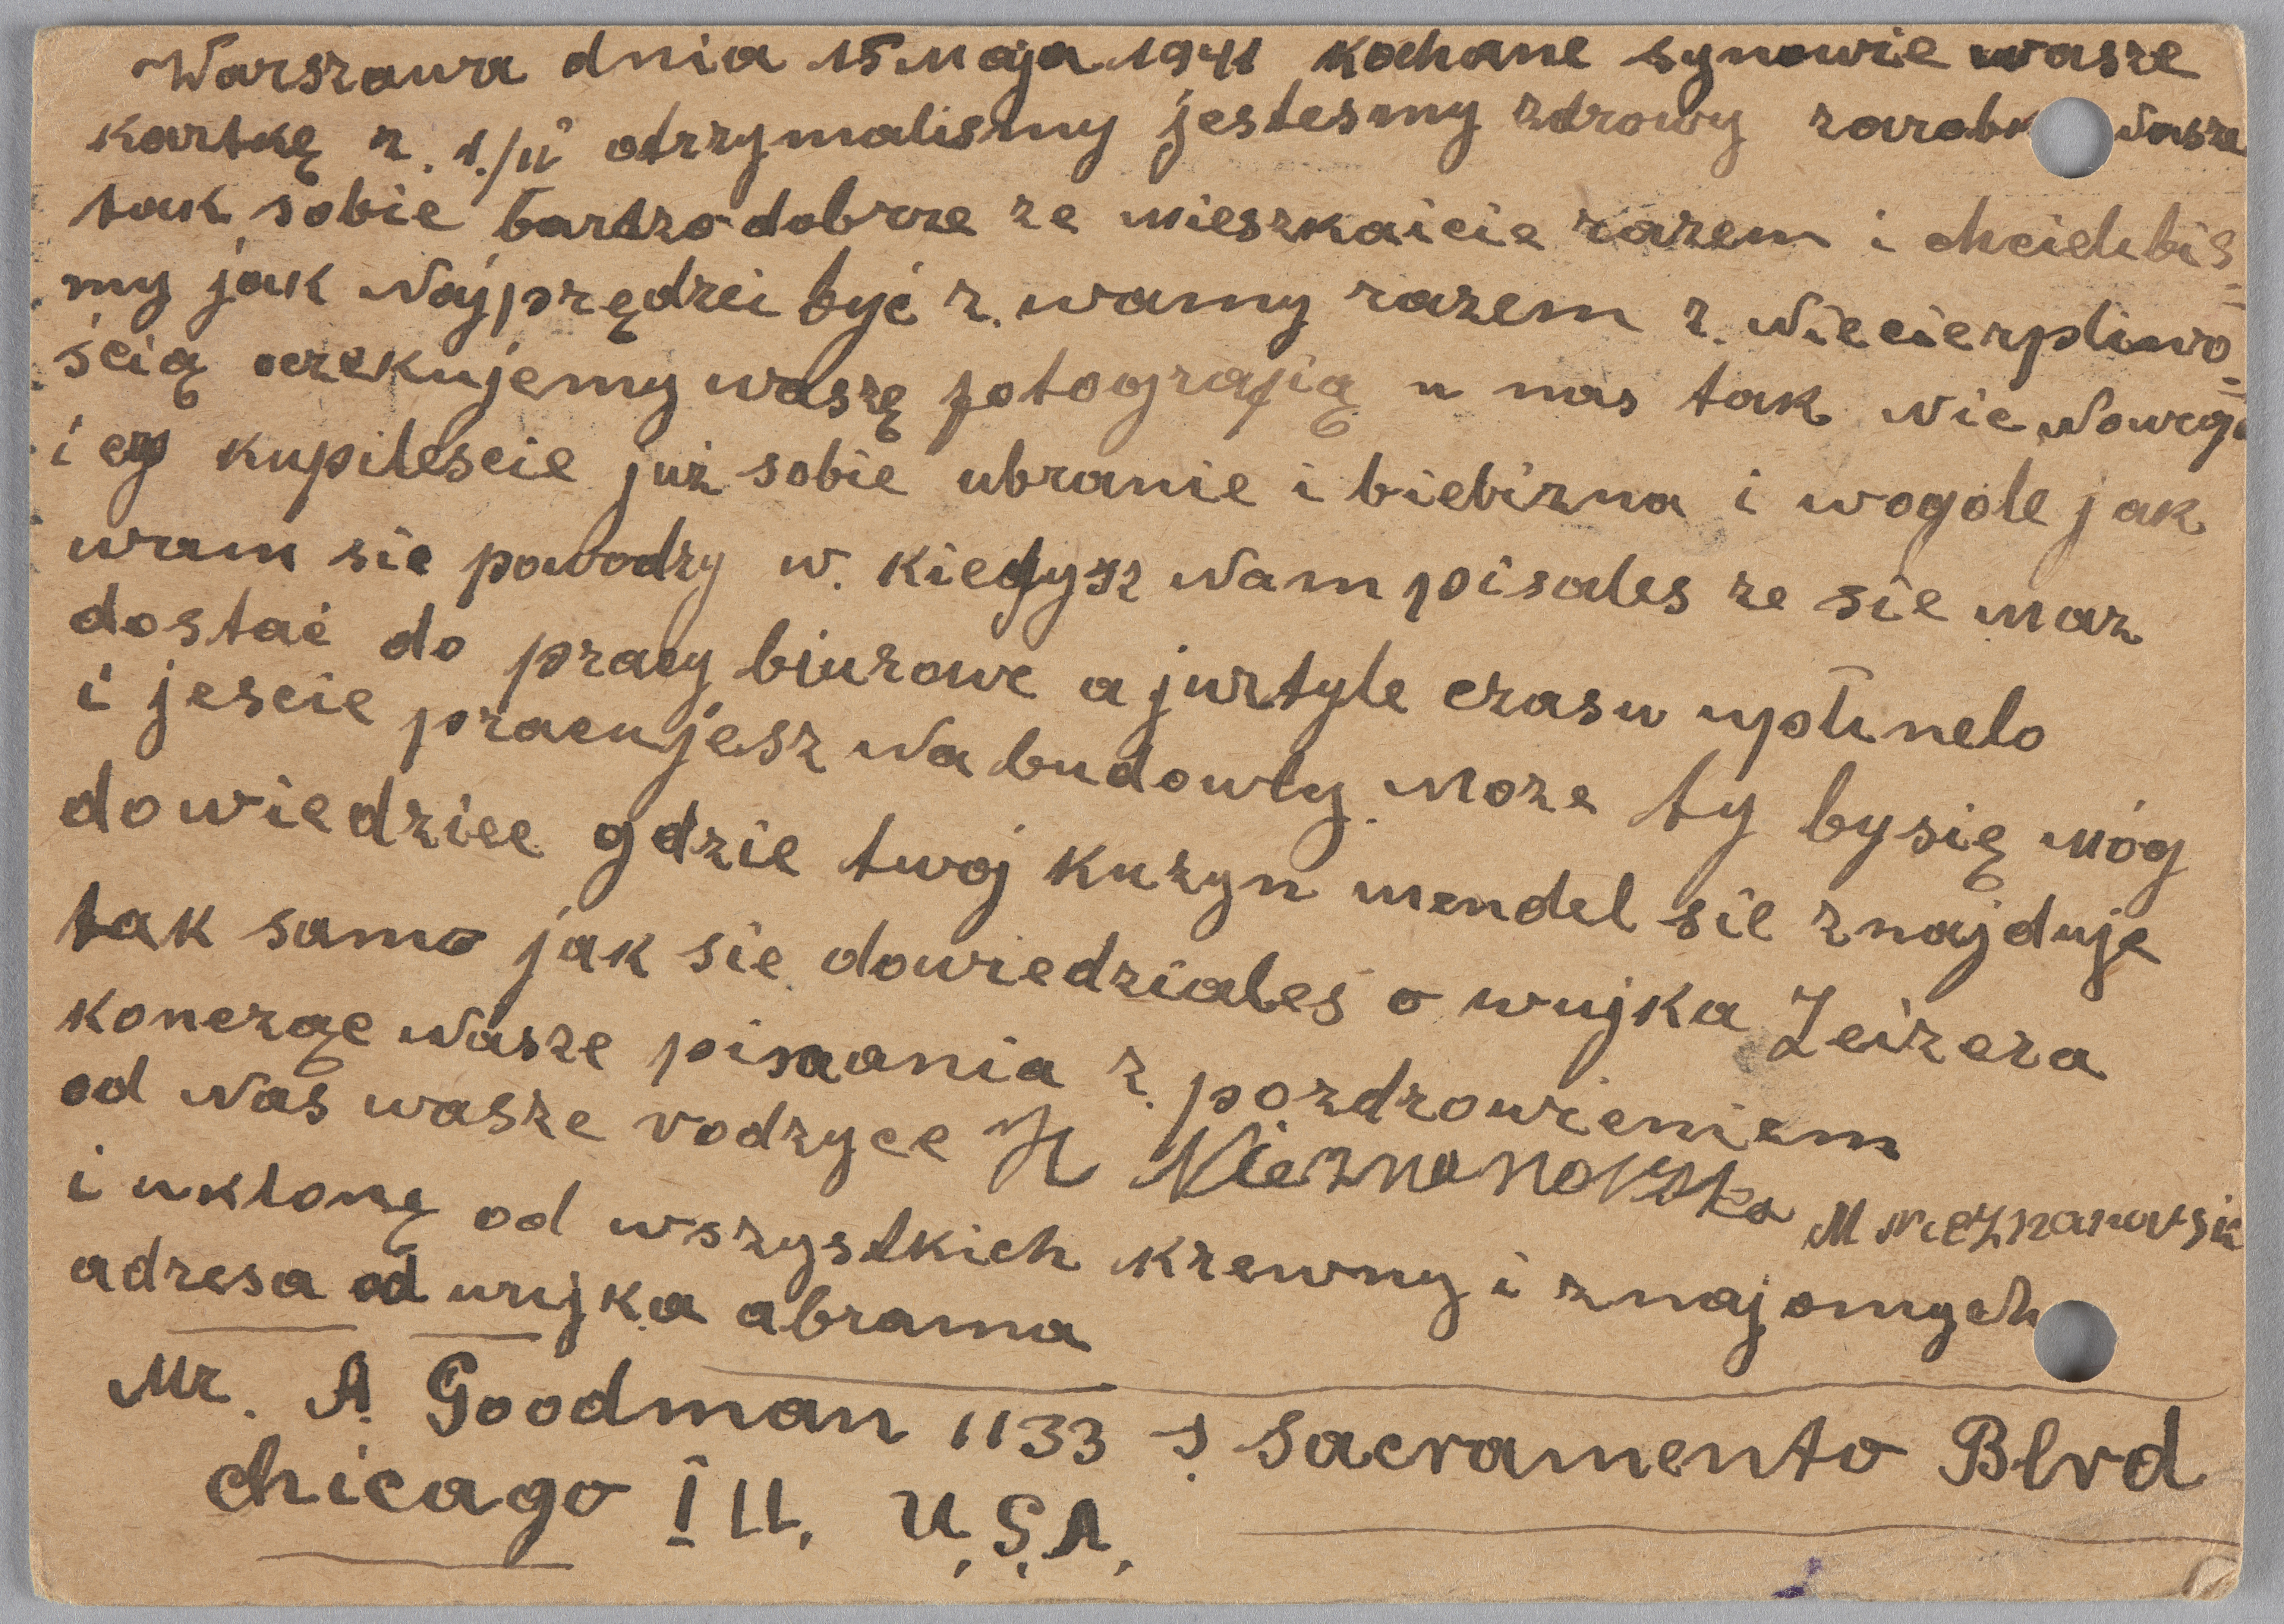 Warszawa dnia 15 Maja 1941 kochane synowie wasze
kartkę z. 1./II otrzymalismy jestesmy zdrowy Nasze
tak sobie bartzo dobrze ze mieszkaicie razem i chcielibis=
my jak Najprędzei być z. wamy razem z. Niecierpliwo=
ścią oczekujemy waszę fotografią u nas tak nie Nowego
i czy kupilescie już sobie ubranie i biebizna i wogóle jak
wam sie powodzy w. Nam pisales ze sie masz
dostać do pracy biurowe a jurtyle czasu upłinelo
i jescie pracujesz Na budowly. Moze ty bysię móg
dowiedziec gdzie twoj kuzyn mendel sie znajduje
tak samo jak sie dowiedziales o wujka Leizera
koncząc Nasze pisania z. pozdrowieniem
od Nas wasze rodzyce H Nieznanowska M Nieznanowsik
i uklonę od wszystkich krewny i znajomych
adresa od wujka abrama
Mr. A. Goodman 1133 S. Sacramento Blvd
chicago Ill. U.S.A.